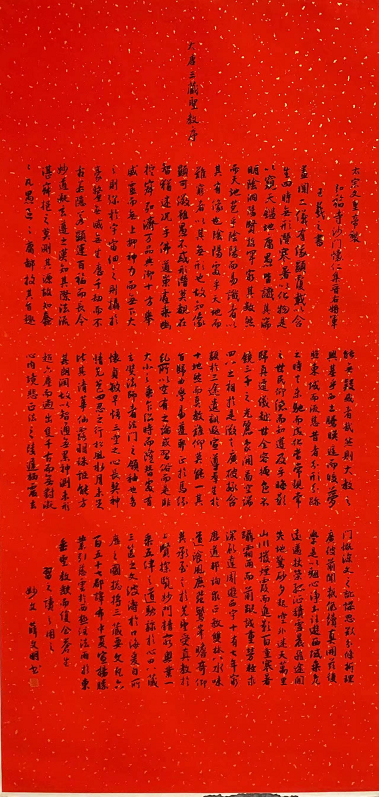 大唐三藏聖教序
太宗文皇帝製
弘福寺沙門懷仁集晉右將軍
王羲之書
蓋聞二儀有像顯覆載以含
生四時無形潛寒暑以化物是
以窺天鑑地庸愚皆識其端
明陰洞陽賢哲罕窮其數然
而天地苞乎陰陽而易識者以
其有像也陰陽處乎天地而
難窮者以其無形也故知像
顯可徵雖愚不惑形潛莫覩在
智猶迷況乎佛道崇虛乘幽
控寂弘濟萬品典御十方舉
威靈而無上抑神力而無下大
之則彌於宇宙細之則攝於
毫釐無滅無生歷千劫而不
古若隱若顯運百福而長今
妙道凝玄遵之莫知其際法流
湛寂挹之莫測其源故知蠢
蠢凡愚區區庸鄙投其旨趣
能無疑或者哉然則大教之
興基乎西土騰漢庭而皎夢
照東域而流慈昔者分形分跡
之時言未馳而成化當常現常
之世民仰德而知遵及乎晦影
歸真遷儀越世金容掩色不
鏡三千之光麗象開圖空端
四八之相於是微言廣被拯含
類於三途遺訓遐宣導群生於
十地然而真教難仰莫能一其
旨歸曲學易遵邪正於焉紛
糺所以空有之論或習俗而是非
大小之乘乍沿時而隆替有
玄奘法師者法門之領袖也幼
懷貞敏早悟三空之心長契神
情先苞四忍之行松風水月未足
比其清華仙露明珠詎能方
其朗潤故以智通無累神測未形
超六塵而迥出隻千古而無對凝
心內境悲正法之陵遲栖慮玄
門慨深文之訛謬思欲分條析理
廣彼前聞截偽續真開茲後
學是以翹心淨土往遊西域乘危
遠邁杖策孤征積雪晨飛途間
失地驚砂夕起空外迷天萬里
山川撥煙霞而進影百重寒暑
躡霜雨而前蹤誠重勞輕求
深願達周遊西宇十有七年窮
歷道邦詢求正教雙林八水味
道餐風鹿苑鷲峰瞻奇仰
異承至言於先聖受真教於
上賢探賾妙門精窮奧業一
乘五律之道馳驟於心田八藏
三篋之文波濤於口海爰自所
歷之國總將三藏要文凡六
百五十七部譯布中夏宣揚勝
業引慈雲於西極注法雨於東
垂聖教缺而復全蒼生